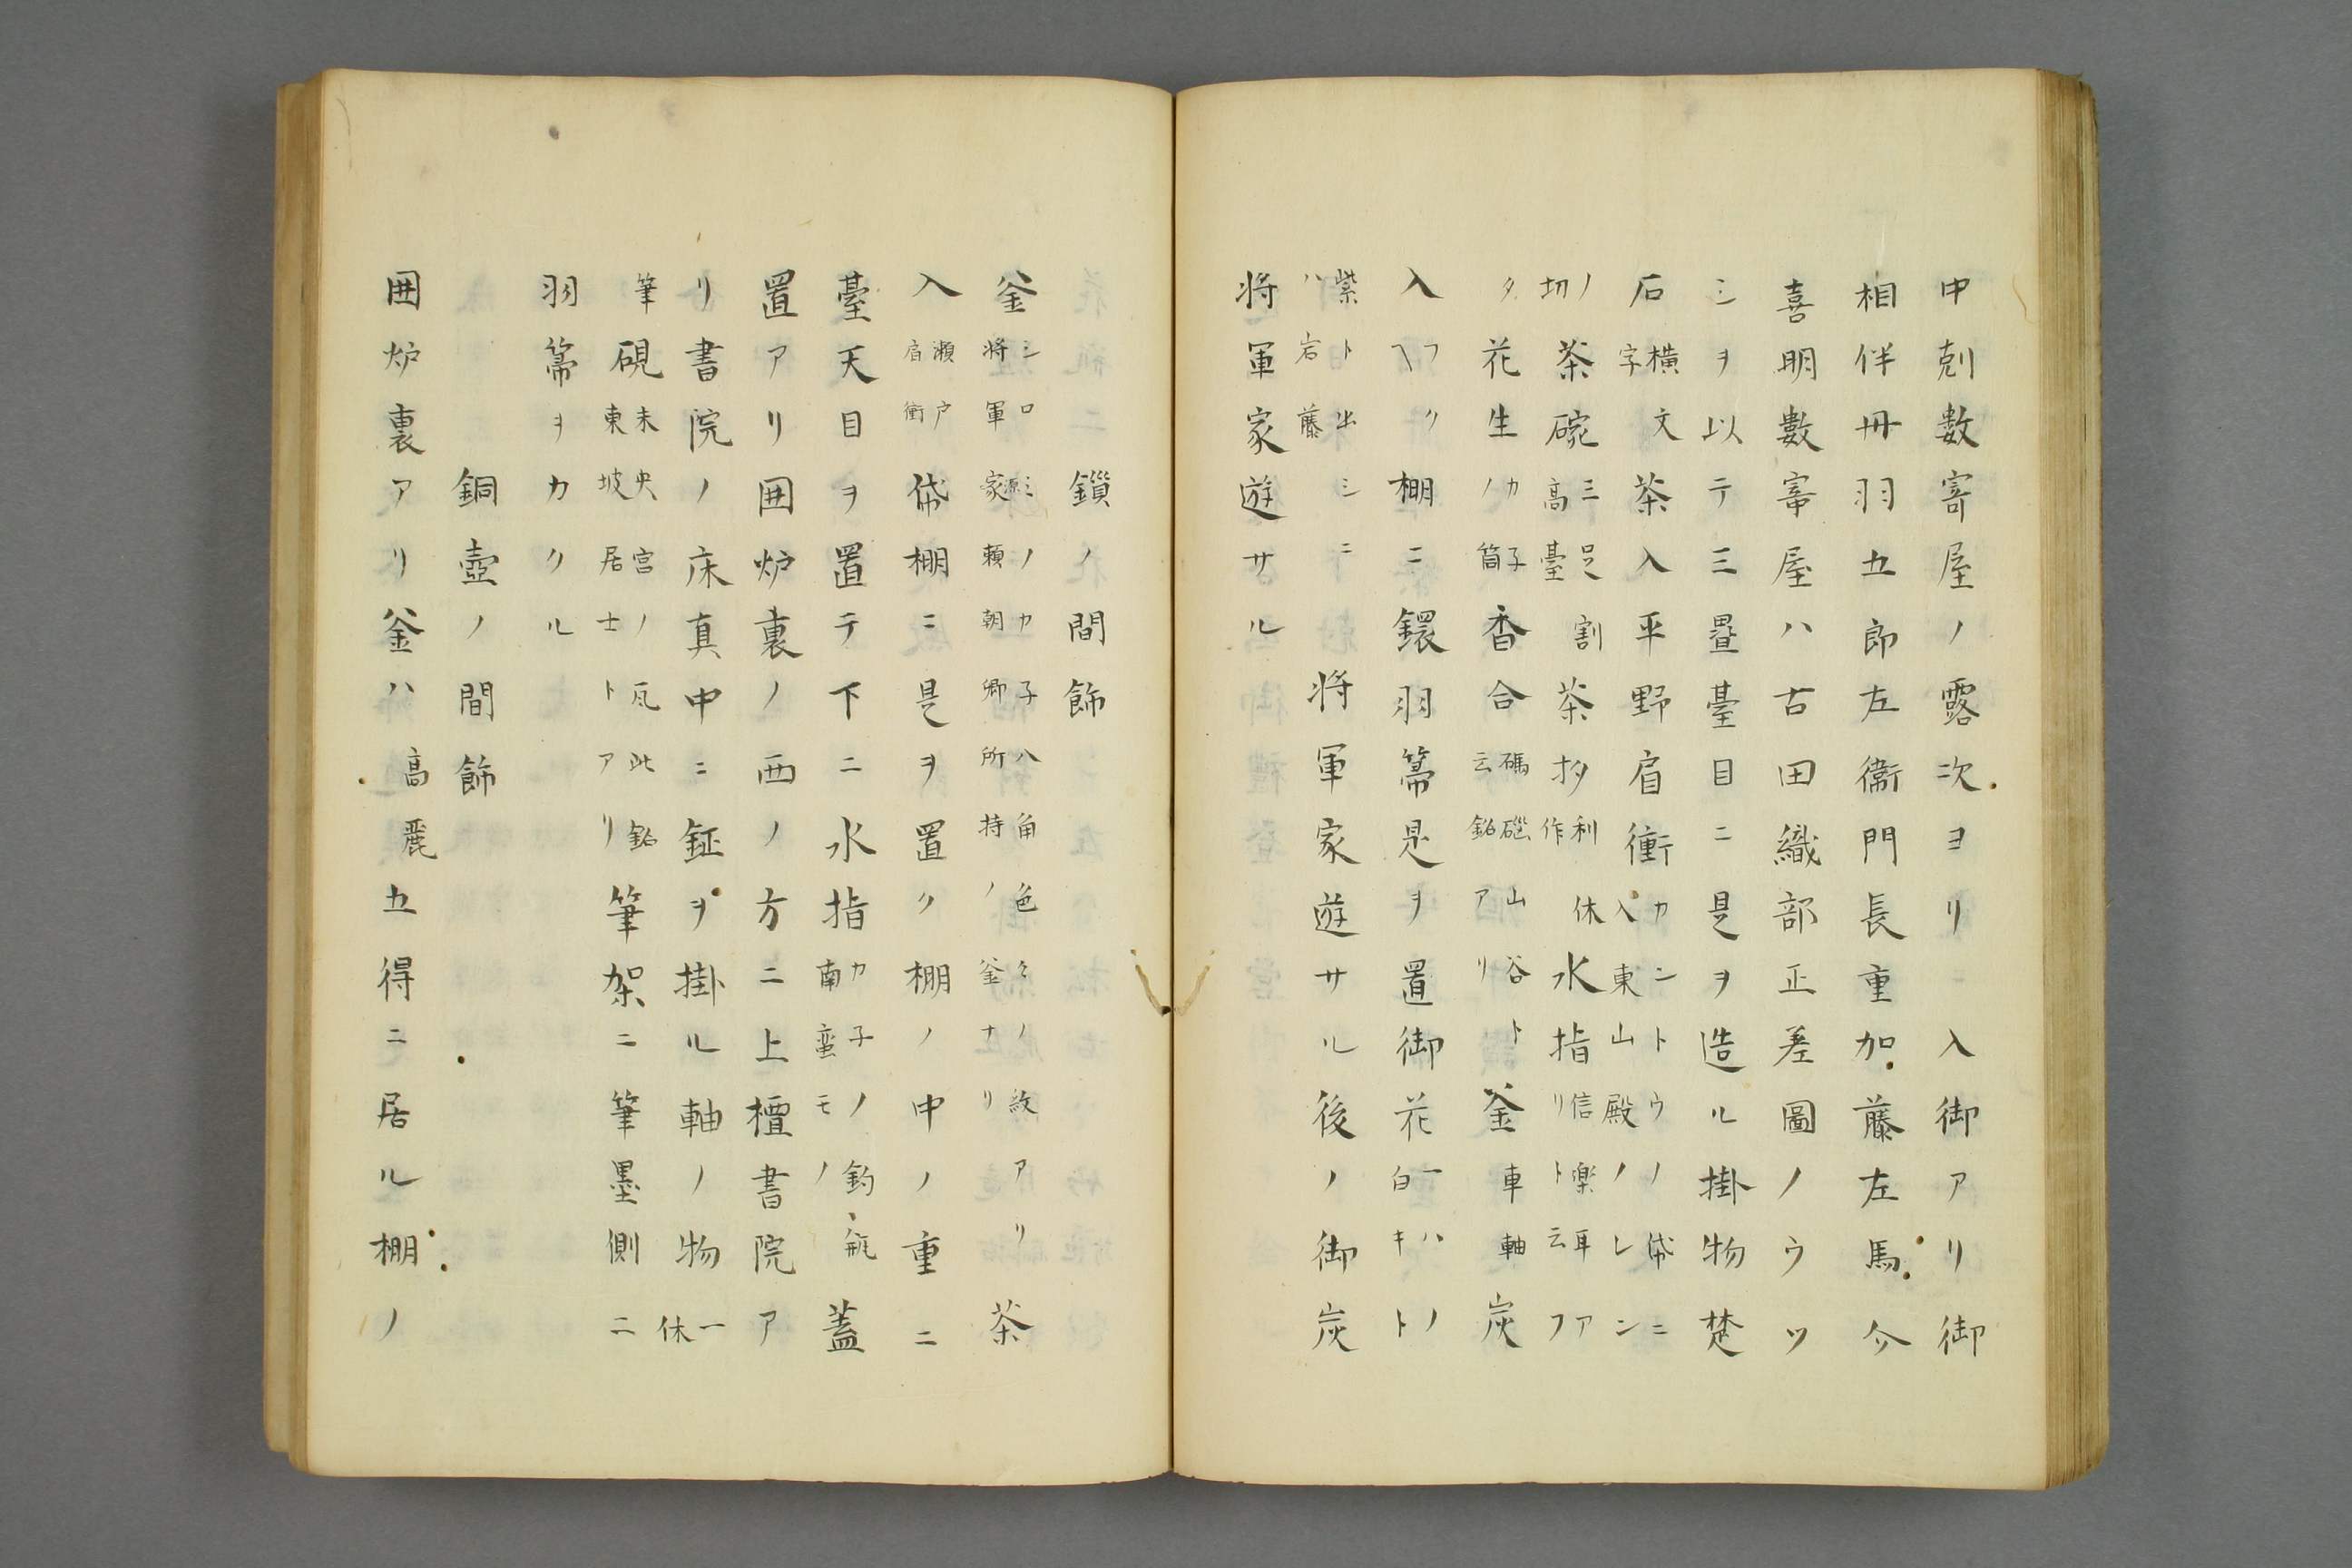 申剋數寄屋ノ露次ヨリ　入御アリ御
相伴丹羽五郎左衞門長重加藤左馬介
喜明數寄屋ハ古田織部正差圖ノウツ
シヲ以テ三畳臺目ニ是ヲ造ル掛物楚
石横文字茶入平野肩衝カントウノ帒ニ入東山殿ノレン
ノ切茶碗三足割高臺茶杓利休作水指信楽耳アリト云フ
タ花生カ子ノ筒香合碼碯山谷ト云銘アリ釜車軸炭
入フクヘ棚ニ鐶羽箒是ヲ置御花一ハノ白キト
紫ト出シニハ岩藤　将軍家遊サル後ノ御炭
将軍家遊サル
鎖ノ間飾
釜シロミノカ子八角色々ノ紋アリ将軍家源頼朝卿所持ノ釜ナリ茶
入瀬戸肩衝帒棚ニ是ヲ置ク棚ノ中ノ重ニ
臺天目ヲ置テ下ニ水指カ子ノ釣瓶南蛮モノ蓋
置アリ囲炉裏ノ西ノ方ニ上檀書院ア
リ書院ノ床真中ニ鉦ヲ掛ル軸ノ物一休
筆硯未央宮ノ瓦此銘東坡居士トアリ筆架ニ筆墨側ニ
羽箒ヲカクル
銅壺ノ間飾
囲炉裏アリ釜ハ高麗五得ニ居ル棚ノ